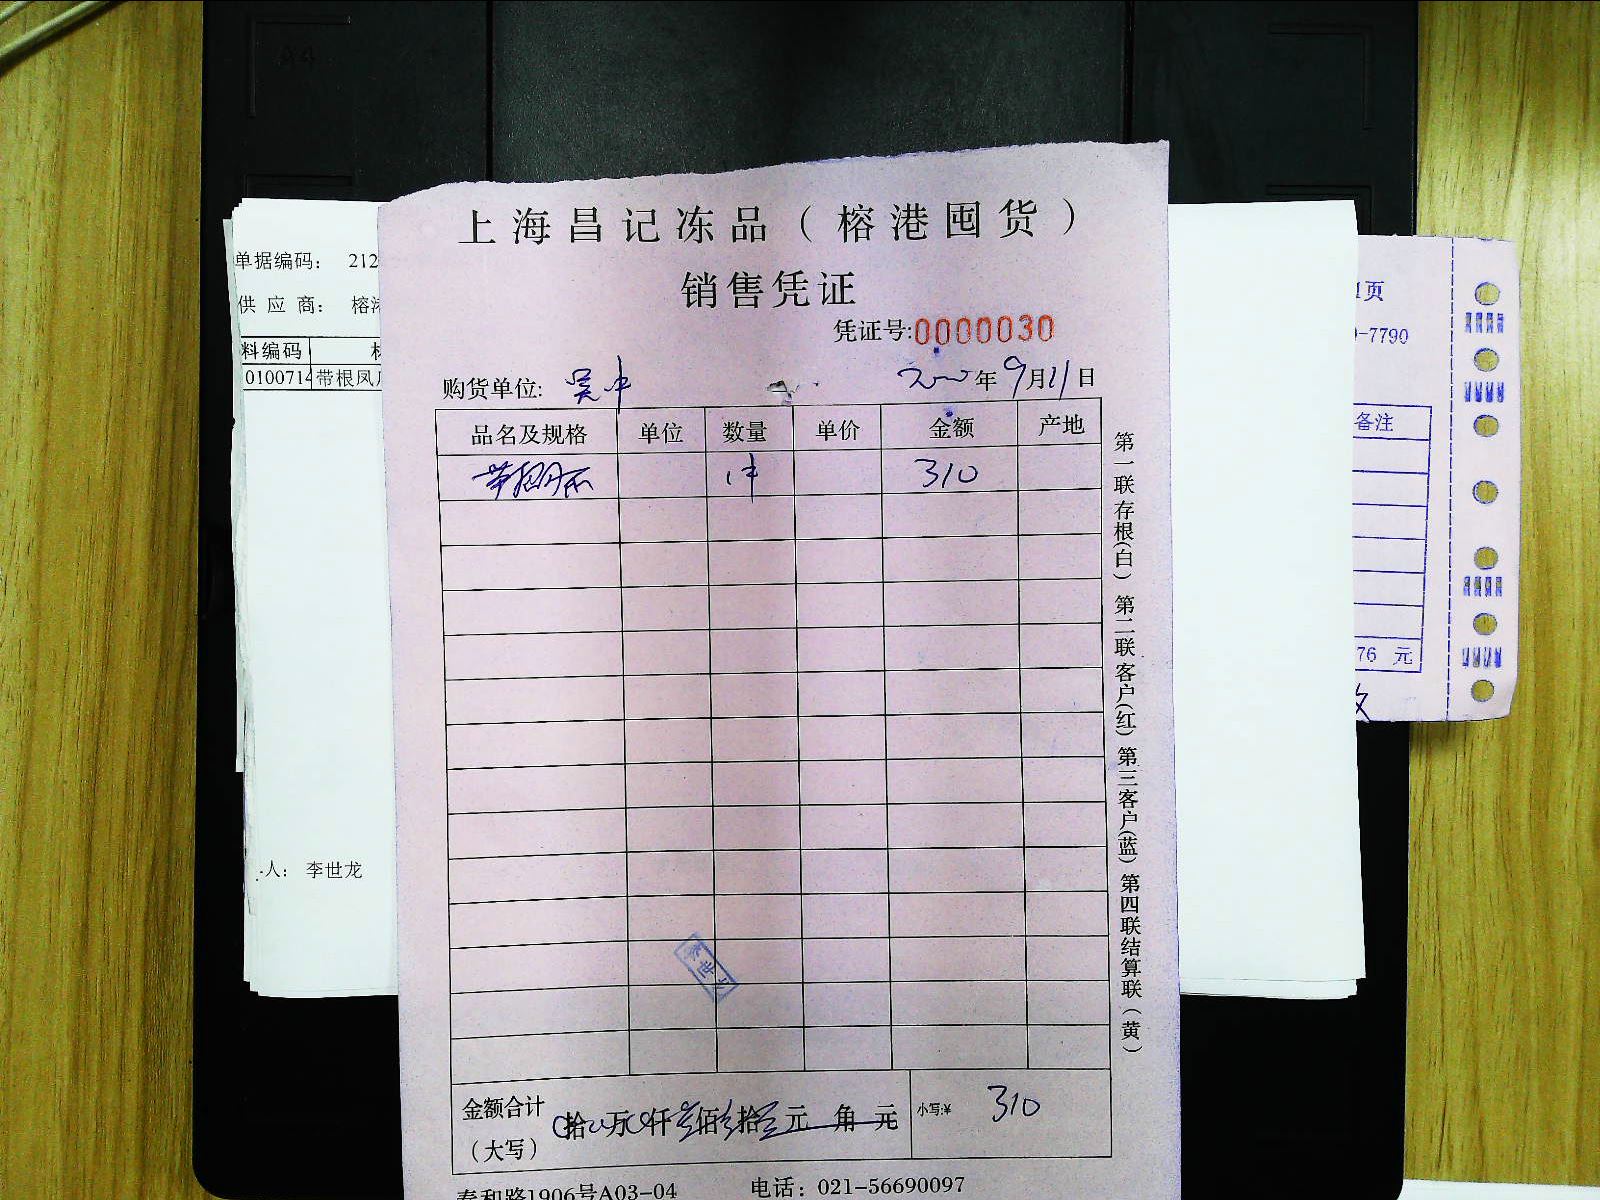 上海昌记冻品（榕港囤货）
销售凭证
凭证号:0000030
购货单位: 吴中 年9月11日
品名及规格 单位 数量 单价 金额 产地
1件 310
金额合计（大写） 拾 万 仟 佰 拾 元 角 元 小写:¥ 310
泰和路1906号A03-04 电话：021-56690097
第一联存根(白) 第二联客户(红) 第三客户(蓝) 第四联结算联（黄）
单据编码： 212
供 应 商： 榕港
料编码
0100714 带根凤爪
人： 李世龙
李世龙
1页
-7790
备注
76 元